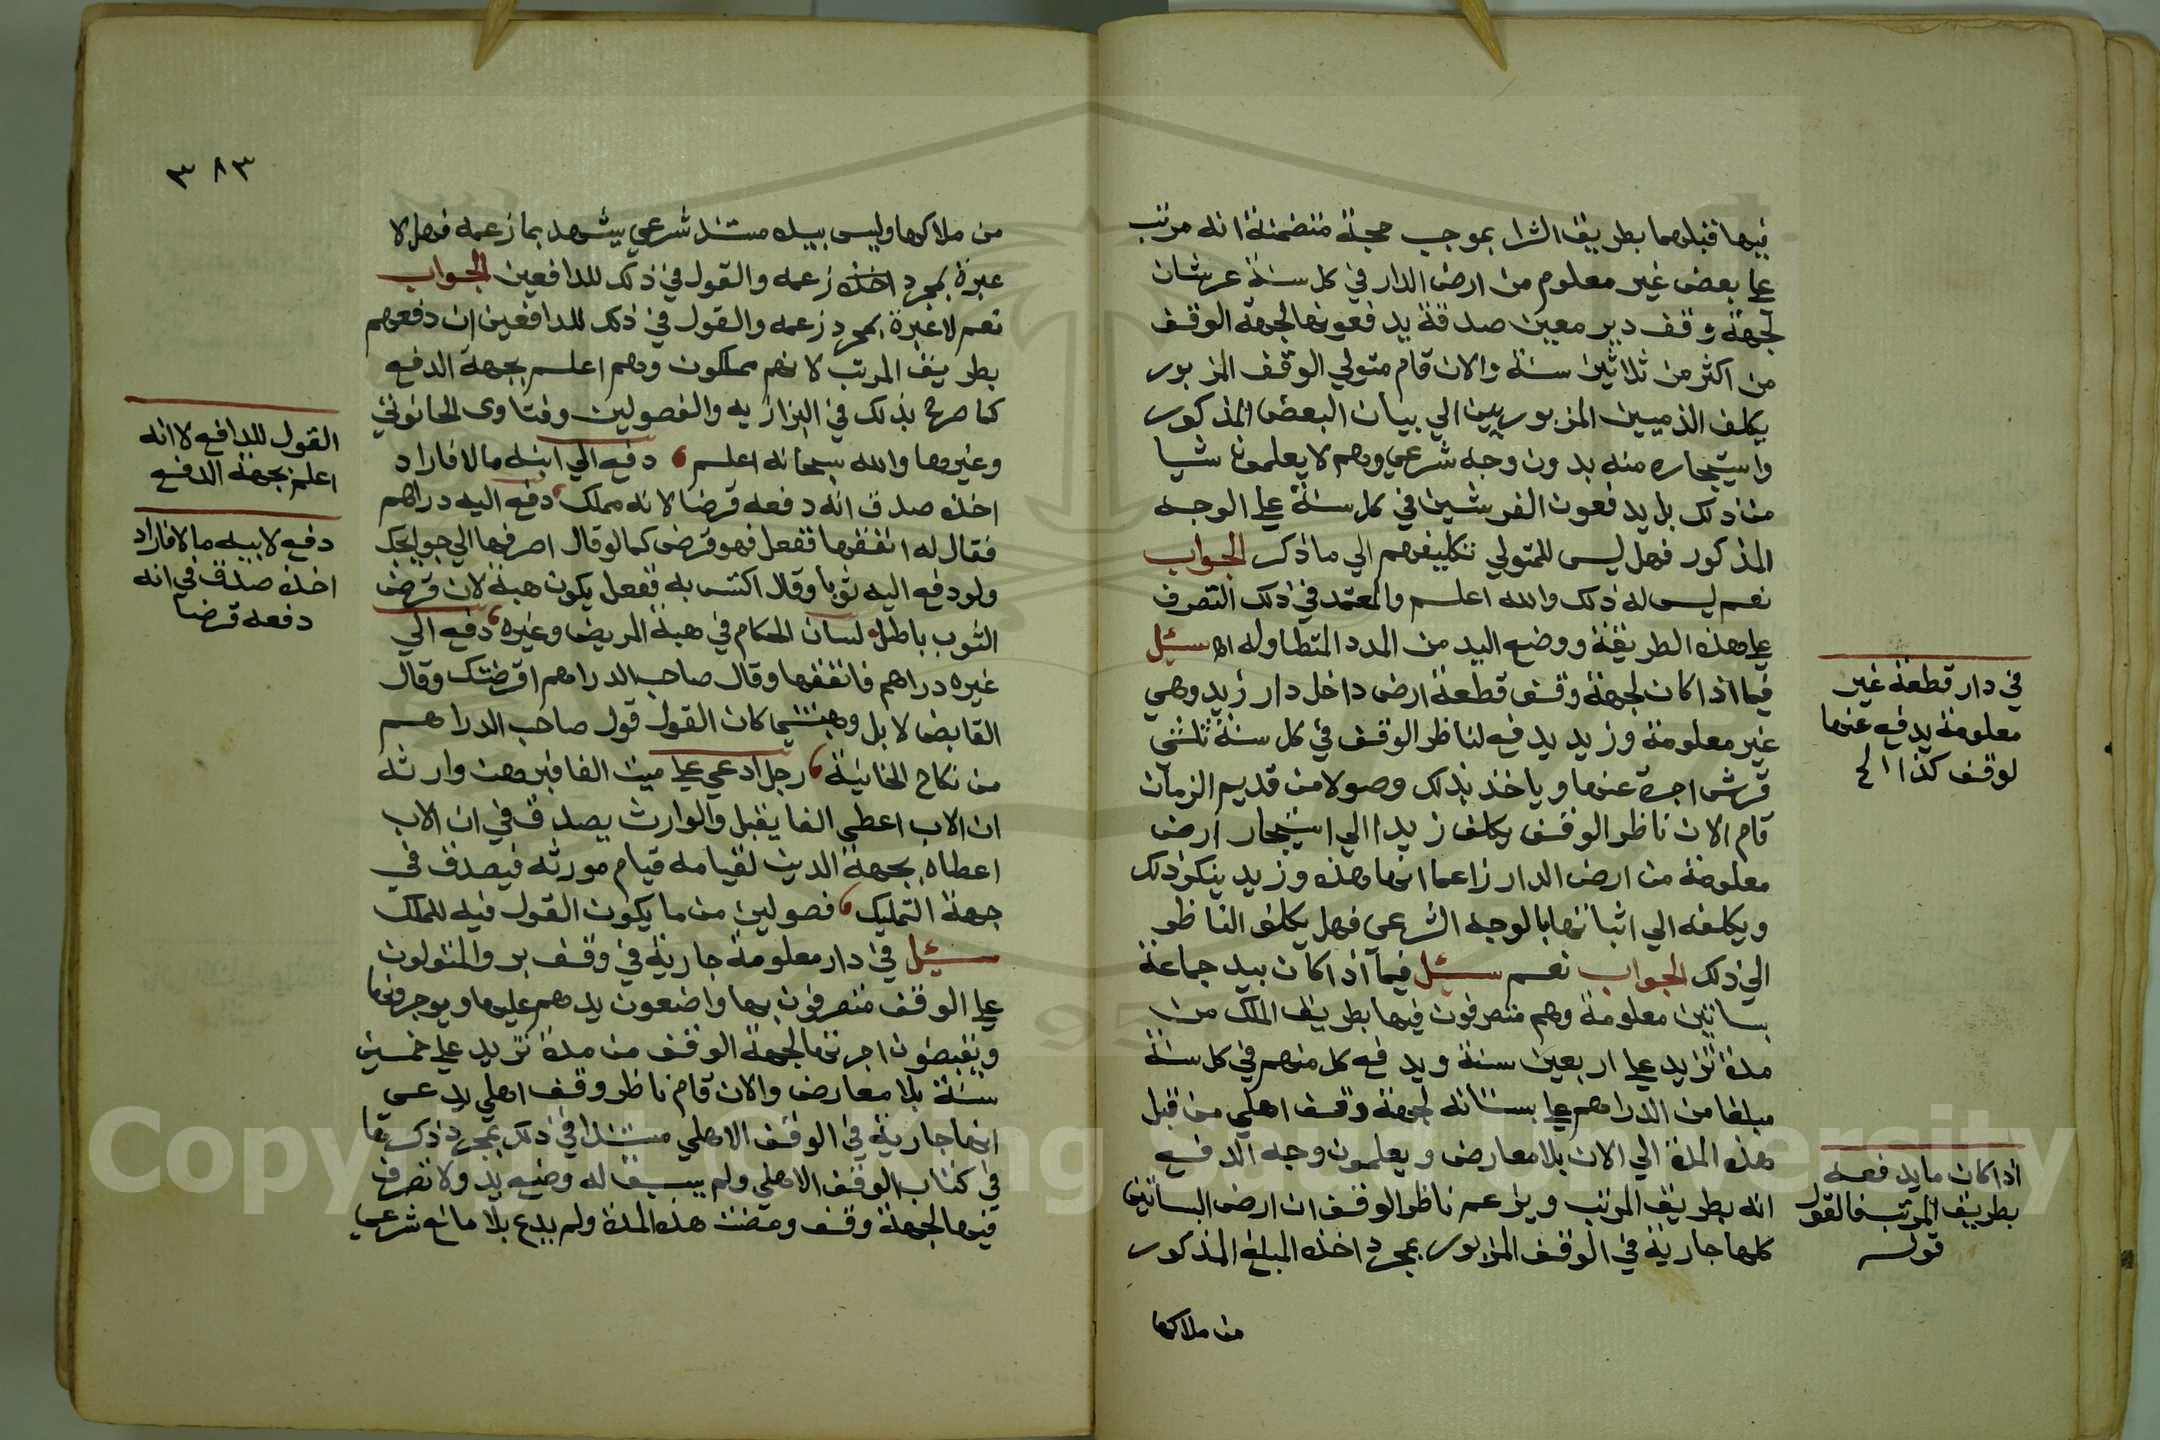 فيها قبلهما بطريق الشرا بموجب حجة متضمنة انه مرتب
على بعض غير معلوم من ارض الدار في كل سنة عرشان
لجهة وقف دير معين صدقة يدفعونها لجهة الوقف
من اكثر من ثلاثين سنة والان قام متولي الوقف المزبور
يكلف الذميين المزبورين الي بيان البعض المذكور
واستيجاره منه بدون وجه شرعي وهم لا يعلمون شيا
من ذلك بل يدفعون القرشين في كل سنة على الوجه
المذكور فهل ليس للمتولي تكليفهم الي ما ذكر الجواب
نعم ليس له ذلك والله اعلم والمعتمد في ذلك التصرف
على هذه الطريقة ووضع اليد من المدد المتطاوله اه سئل
فيما اذا كان لجهة وقف قطعة ارض داخل دار زيد وهي
غير معلومة وزيد يدفع لناظر الوقف في كل سنة ثلثي
قرش اجرة عنها وياخذ بذلك وصولا من قديم الزمان
قام الان ناظر الوقف يكلف زيدا الي استيجار ارض
معلومة من ارض الدار زاعما انها هذه وزيد ينكر ذلك
ويكلفه الي اثباتها بالوجه الشرعي فهل يكلف الناظر
الي ذلك الجواب نعم سئل فيما اذا كان بيد جماعة
بساتين معلومة وهم متصرفون فيها بطريق الملك من
مدة تزيد على اربعين سنة ويدفع كل منهم في كل سنة
مبلغا من الدراهم على بستانه لجهة وقف اهلي من قبل
هذه المدة الي الان بلا معارض ويعلمون وجه الدفع
انه بطريق المرتب ويزعم ناظر الوقف ان ارض البساتين
كلها جارية في الوقف المزبور بمجرد اخذه المبلغ المذكور
من ملاكها
في دار قطعة غير
معلومة يدفع عنها
لوقف كذا الخ
اذا كان ما يدفعه
بطريق المرتب فالقول
قوله
٣٨٣
من ملاكها وليس بيده مستند شرعي يشهد بما زعمه فهل لا
عبرة بمجرد اخذه زعمه والقول في ذلك للدافعين الجواب
نعم لا عبرة بمجرد زعمه والقول في ذلك للدافعين ان دفعهم
بطريق المرتب لانهم مملكون وهم اعلم بجهة الدفع
كما صرح بذلك في البزازيه والفصولين وفتاوى الحانوتي
وغيرها والله سبحانه اعلم دفع الي ابنه مالا فاراد
اخذه صدق انه دفعه قرضا لانه مملك دفع اليه دراهم
فقال له انفقها ففعل فهو قرض كما لو قال اصرفها الي حوايجك
ولو دفع اليه ثوبا وقال اكتس به ففعل يكون هبة لان قرض
الثوب باطل لسان الحكام في هبة المريض وغيره دفع الي
غيره دراهم فانفقها وقال صاحب الدراهم اقرضتك وقال
القابض لا بل وهبتني كان القول قول صاحب الدراهم
من نكاح الخانية رجل ادعي على ميت الفا فبرهن وارثه
ان الاب اعطي الفا يقبل والوارث يصدق في ان الاب
اعطاه بجهة الدين لقيامه قيام مورثه فيصدق في
جهة التمليك فصولين من ما يكون القول فيه للملك
سئل في دار معلومة جارية في وقف بر والمتولون
على الوقف متصرفون بها واضعون يدهم عليها ويوجرونها
ويقبضون اجرتها لجهة الوقف من مدة تزيد على خمسين
سنة بلا معارض والان قام ناظر وقف اهلي يدعي
انها جارية في الوقف الاهلي مستندا في ذلك بمجرد ذكرها
في كتاب الوقف الاهلي ولم يسبق له وضع يد ولا تصرف
فيها لجهة وقف ومضت هذه المدة ولم يدع بلا مانع شرعي
القول للدافع لانه
اعلم بجهة الدفع
دفع لابنه مالا فاراد
اخذه صدق في انه
دفعه قرضا
Copyright © King Saud University